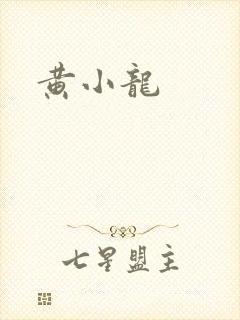 黄小龍
七星盟主